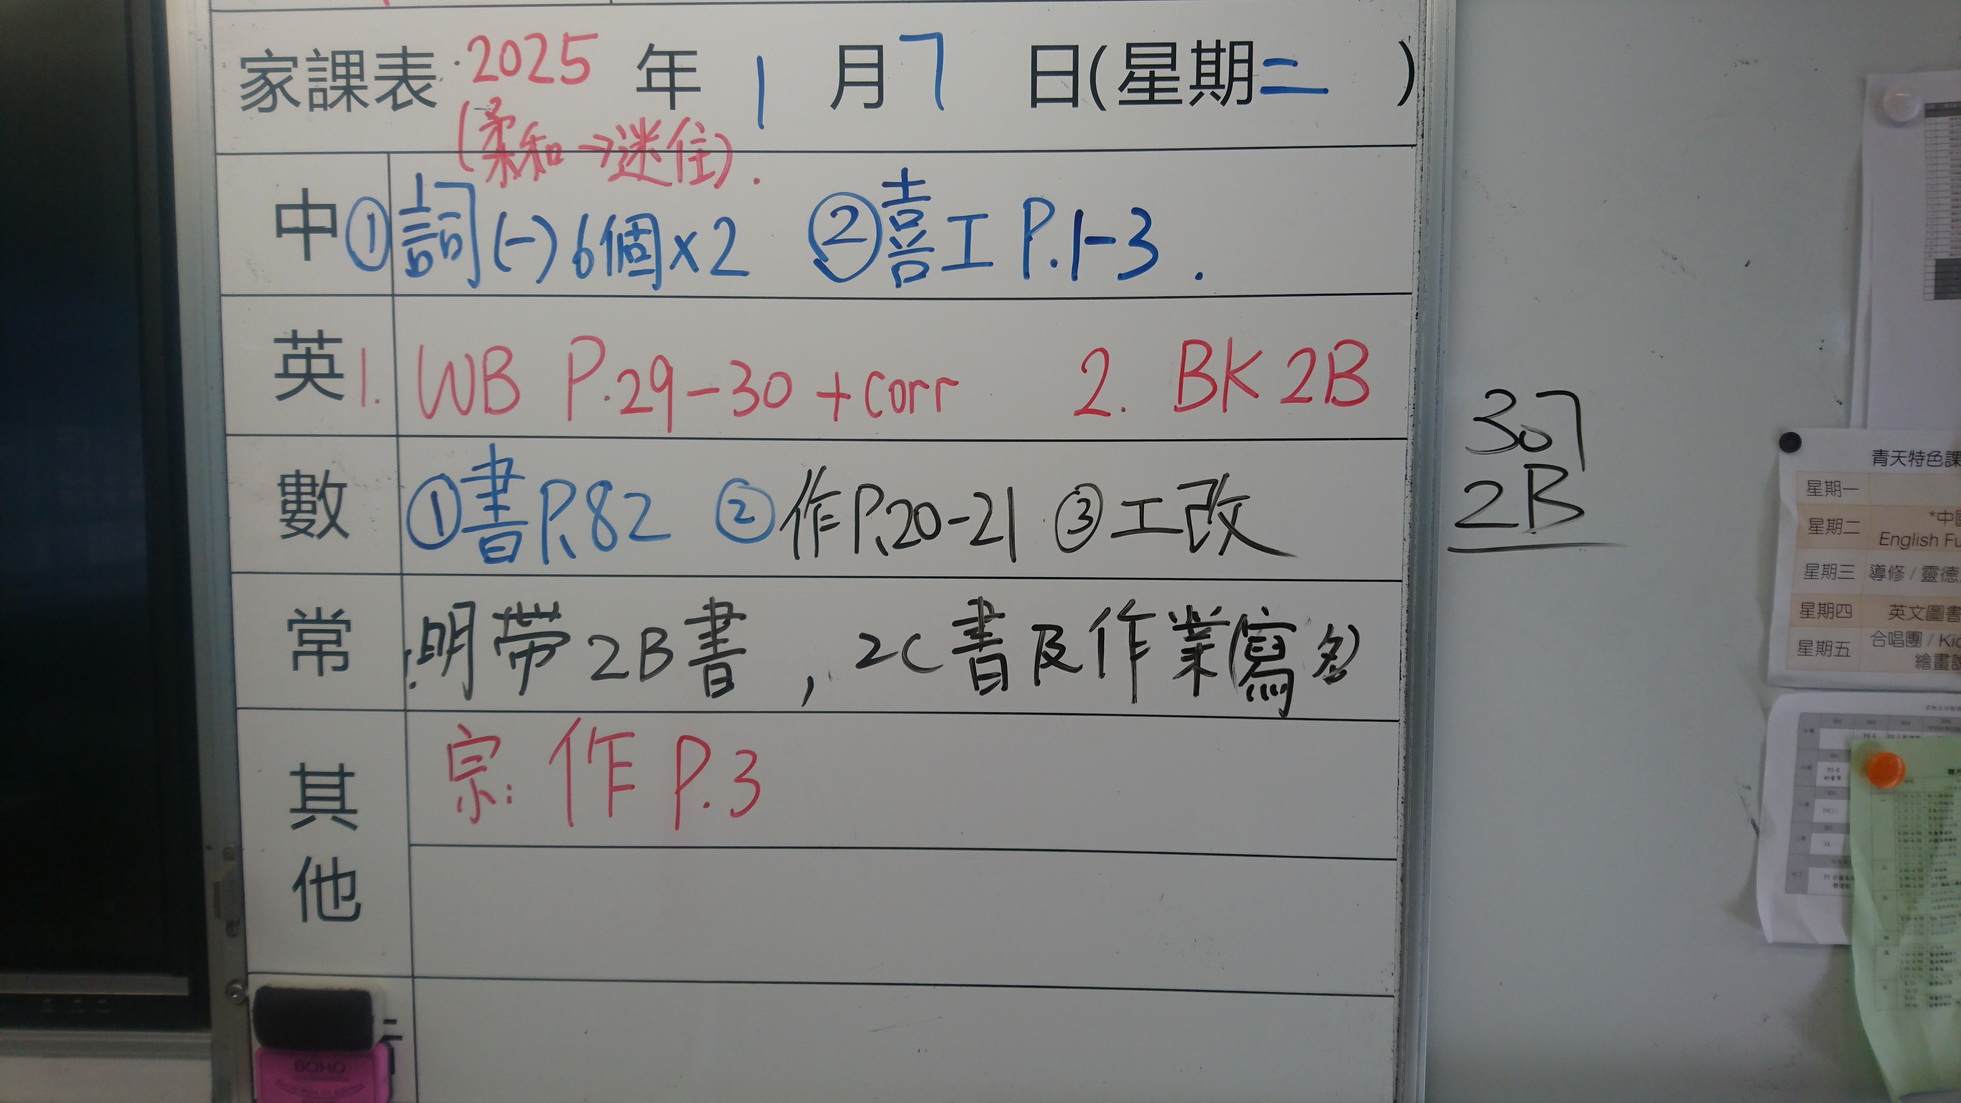 家課表 2025 年 1 月 7 日(星期二 )
(柔和→迷住).
中 ①詞(一)6個x2 ②喜工 P.1-3.
英 1. WB P.29-30 +corr 2. BK 2B
數 ①書P.82 ②作P.20-21 ③工改
常 明帶2B書, 2C書及作業(寫名)
其他 宗: 作 P.3
307
2B
BOHO
青天特色課
星期一
星期二 *中
English Fu
星期三 導修 / 靈德
星期四 英文圖書
星期五 合唱團 / Kid
繪畫